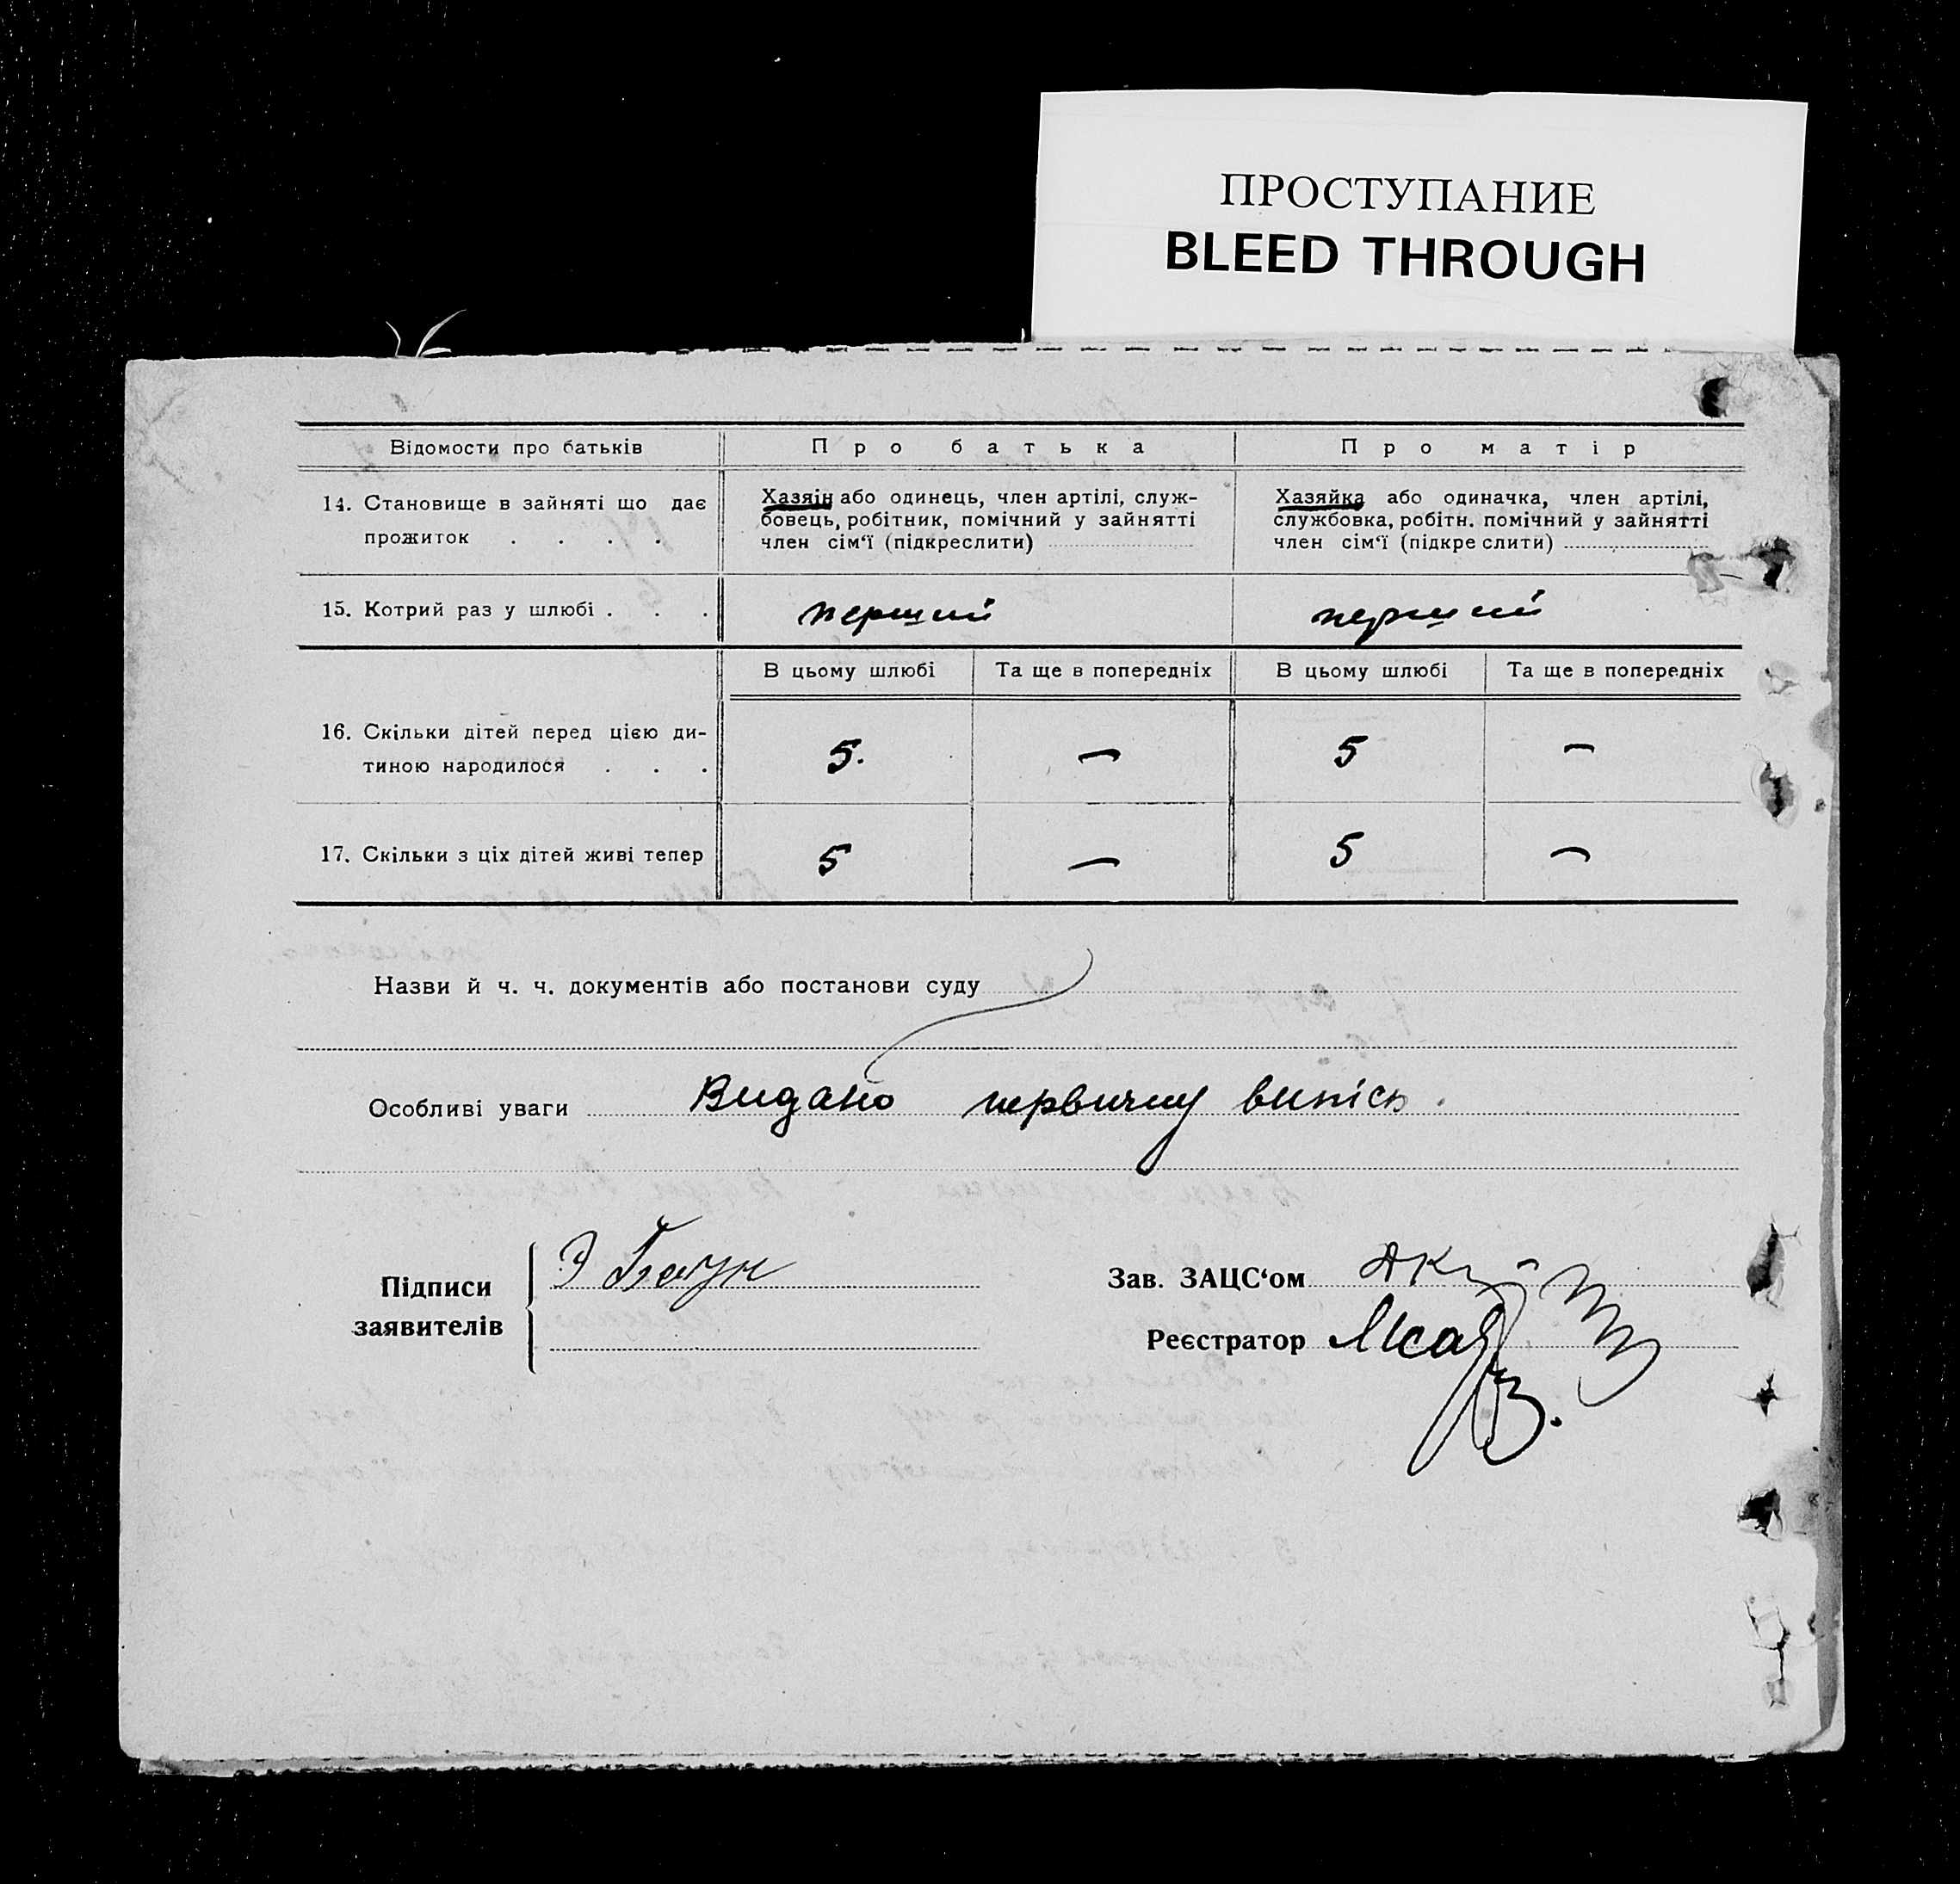 ПРОСТУПАНИЕ
BLEED THROUGH
Відомости про батьків
Про батька
Про матір
14. Становище в зайняті що дає
прожиток . . . .
Хазяін або одинець, член артілі, служ-
бовець, робітник, помічний у зайнятті
член сім‘ї (підкреслити)
Хазяйка або одиначка, член артілі,
службовка, робітн. помічний у зайнятті
член сім‘ї (підкре слити)
15. Котрий раз у шлюбі . . .
перший
перший
В цьому шлюбі
Та ще в попередніх
В цьому шлюбі
Та ще в попередніх
16. Скільки дітей перед цією ди-
тиною народилося . . .
5.
—
5
—
17. Скільки з ціх дітей живі тепер
5
—
5
—
Назви й ч. ч. документів або постанови суду
Особливі уваги Видано первичну випісь.
Підписи
заявителів
Зав. ЗАЦС‘ом
Реєстратор